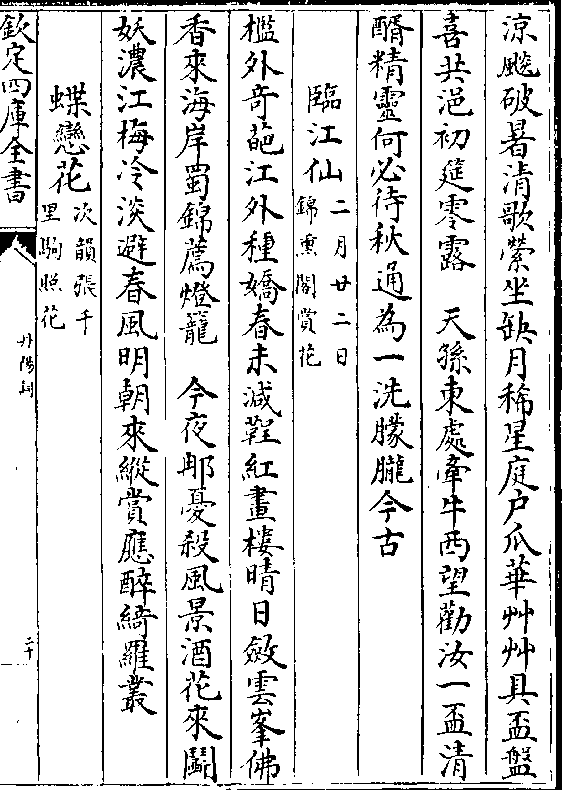 涼飈破暑清歌縈坐缺月稀星庭户瓜華艸艸具盃盤
喜共浥初筵零露　天孫東處牽牛西望勸汝一盃清
醑精靈何必待秋通為一洗朦朧今古
臨江仙二月廿二日錦熏閣賞花
檻外竒葩江外種嬌春未減鞓紅畫樓晴日斂雲峯佛
香來海岸蜀錦薦燈籠　今夜那憂殺風景酒花來鬭
妖濃江梅冷淡避春風明朝來縱賞應醉綺羅叢
蝶戀花次韻張千里駒照花
欽定四庫全書
丹陽詞
二十